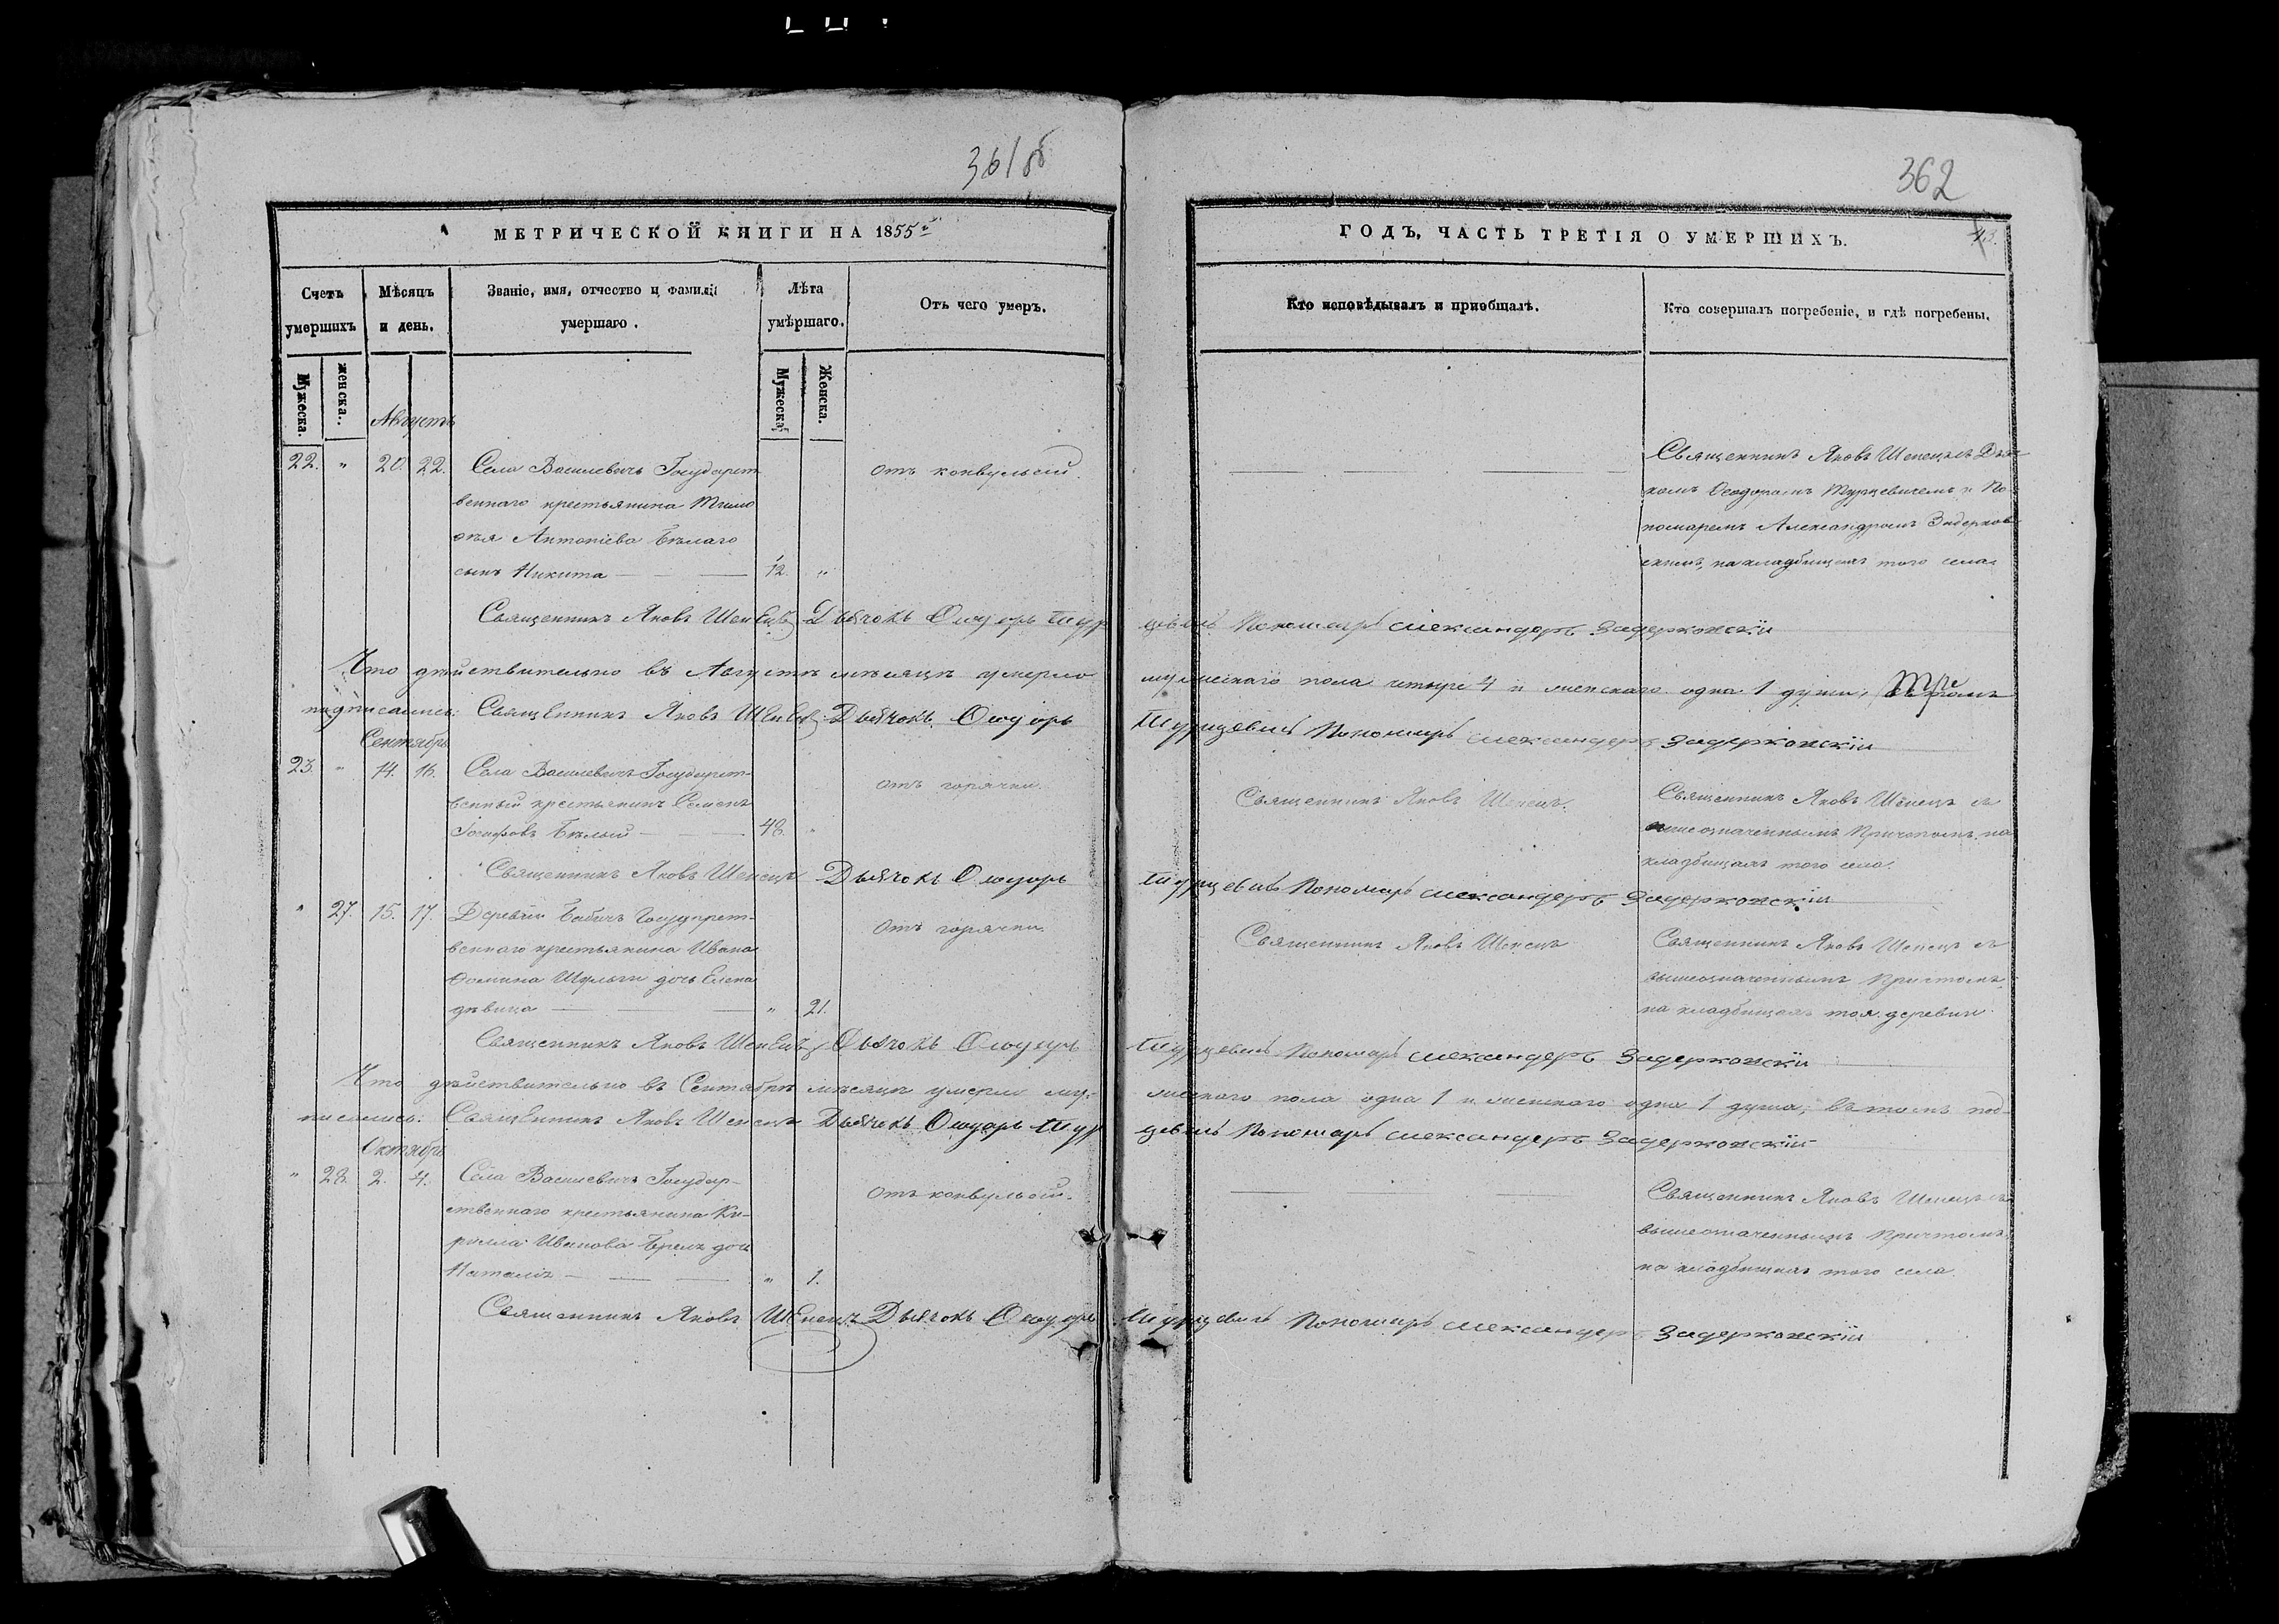 361об
362
МЕТРИЧЕСКОЙ КНИГИ НА 1855й
ГОДЪ, ЧАСТЬ ТРЕТІЯ О УМЕРШИХЪ.
43.
Счетъ умершихъ
Мѣсяцъ и день.
Званіе, имя, отчество и фамилія умершаго.
Лѣта умѣршаго.
Отъ чего умеръ.
Кто исповѣдывалъ и пріобщалъ.
Кто совершалъ погребеніе, и гдѣ погребены.
Мужеска.
женска.
Мужеска
Женска.
Августъ
22. " 20. 22. Села Василевичъ Государст-
венного крестьянина Тимо
ѳея Антоніева Бѣлаго
сынъ Никита — — 12. "
отъ конвульсій.
Священникъ Яковъ Шепецъ съ Дьяч
комъ Ѳеодоромъ Турцевичемъ и По
номаремъ Александромъ Задерков
скимъ, на кладбищахъ того села.
Священникъ Яковъ Шепецъ Дьячокъ Ѳеодоръ Турцевичъ Пономарь Александеръ Задерковскій
Что дѣйствительно въ Августѣ мѣсяцѣ умерло мужескаго пола четыре 4 и женскаго одна 1 души, въ томъ
подписались: Священникъ Яковъ Шепецъ Дьячокъ Ѳеодоръ Турцевичъ Пономарь Александеръ Задерковскій
Сентябрь
23. " 14. 16. Села Василевичъ Государст-
венный крестьянинъ Семенъ
Іосифовъ Бѣлый — — 48. "
отъ горячки.
Священникъ Яковъ Шепецъ.
Священникъ Яковъ Шепецъ съ
вышеозначеннымъ Причтомъ на
кладбищахъ того села.
Священникъ Яковъ Шепецъ Дьячокъ Ѳеодоръ Турцевичъ Пономарь Александеръ Задерковскій
" 27. 15. 17. Деревни Бабичъ Государст-
веннаго крестьянина Ивана
Ѳомина Шульги дочь Елена
дѣвица — — " 21.
Отъ горячки.
Священникъ Яковъ Шепецъ
Священникъ Яковъ Шепецъ съ
вышеозначеннымъ Причтомъ,
на кладбищахъ тоя деревни.
Священникъ Яковъ Шепецъ Дьячокъ Ѳеодоръ Турцевичъ Пономарь Александеръ Задерковскій
Что дѣйствительно въ Сентябрѣ мѣсяцѣ умерли му-
жескаго пола одна 1 и женскаго одна 1 душа, въ томъ под-
писались: Священникъ Яковъ Шепецъ Дьячокъ Ѳеодоръ Турцевичъ Пономарь Александеръ Задерковскій
Октябрь
" 28. 2. 4. Села Василевичъ Государ-
ственнаго крестьянина Ки-
рилла Иванова дочь
Наталія — — " 1.
Отъ конвульсій.
Священникъ Яковъ Шепецъ съ
вышеозначеннымъ Причтомъ,
на кладбищахъ того села.
Священникъ Яковъ Шепецъ Дьячокъ Ѳеодоръ Турцевичъ Пономарь Александеръ Задерковскій